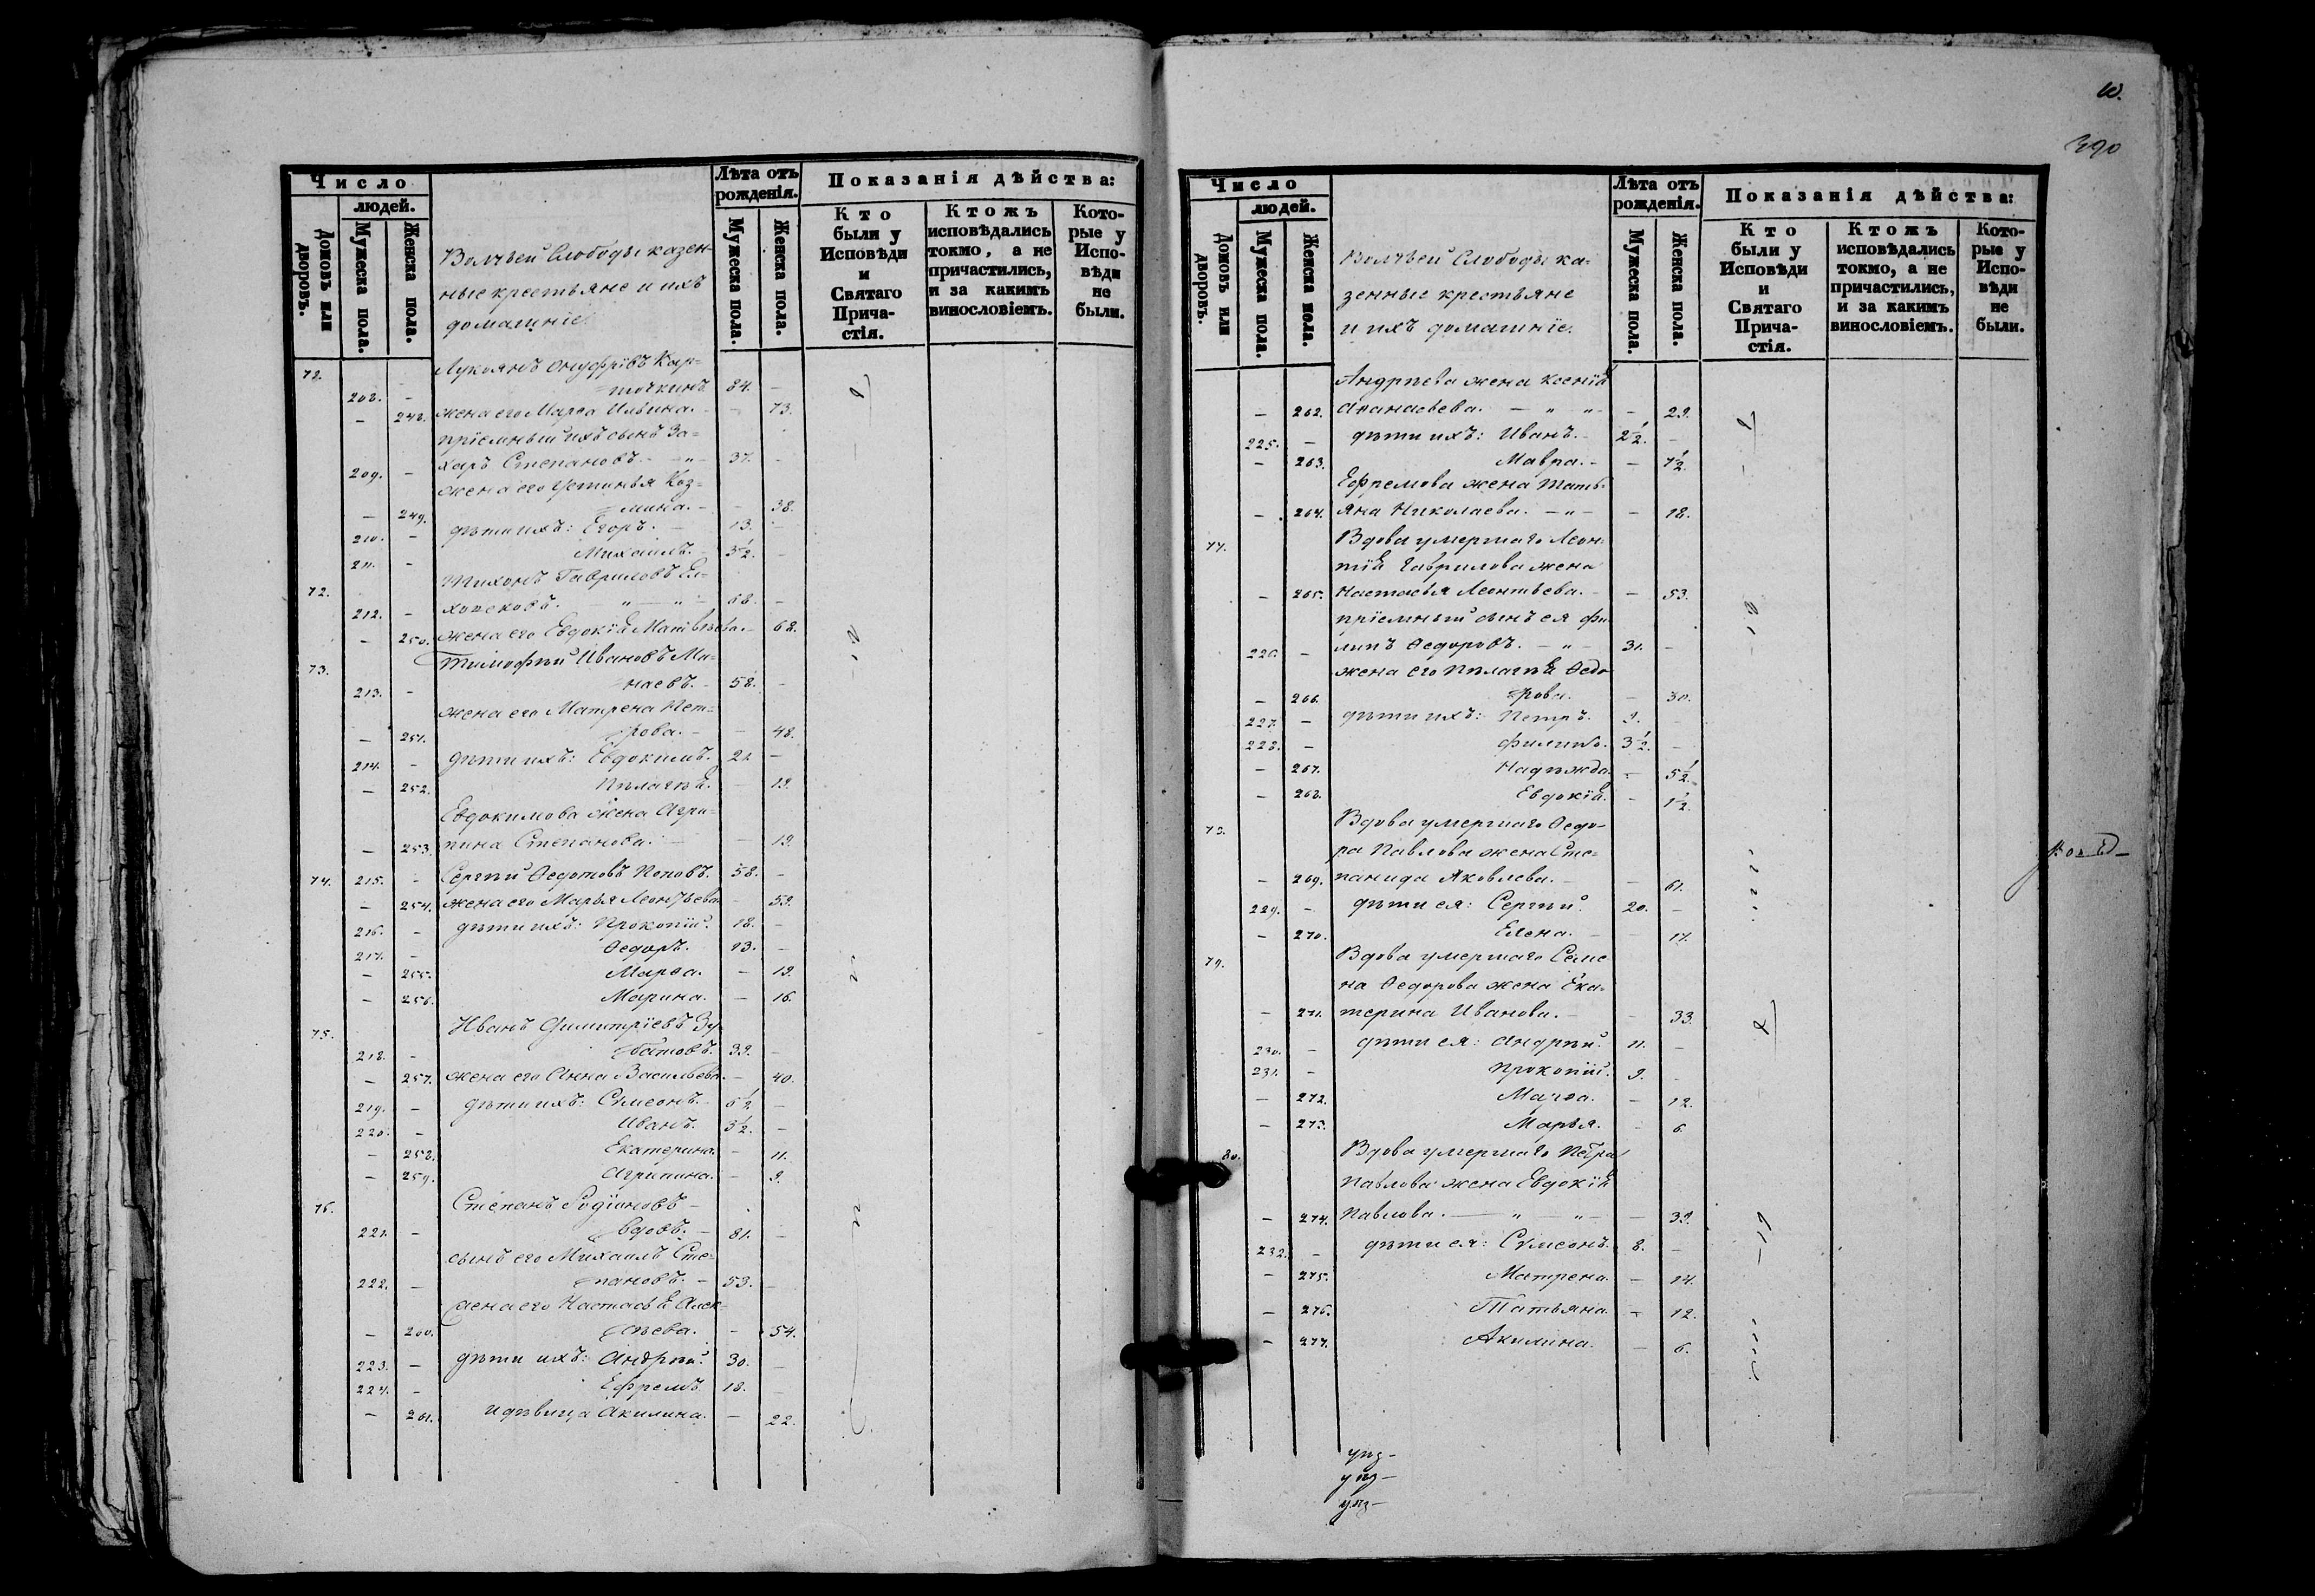 Число
людей.
Домовъ или дворовъ.
Мужеска пола.
Женска пола.
Волчьей Слободы казен-
ные крестьяне и ихъ
домашніе.
Лѣта отъ рожденія.
Мужеска пола.
Женска пола.
Показанія дѣйства:
Кто были у Исповѣди и Святаго Прича- стія.
Ктожъ исповѣдались токмо, а не причастились, и за какимъ винословіемъ.
Кото- рые у Испо- вѣди не были.
Лукоянъ Онуфріевъ Кар=
208. - =точкинъ 84. -
- 248. жена его Марѳа Ильина. - 73.
пріемный ихъ сынъ За=
209. - харъ Степановъ. - " - 37. -
жена его Устинья Коз=
- 249. =мина. - - 38.
210. - дѣти ихъ: Егоръ. - 13. -
211. - Михаилъ. 3½. -
72. Тихонъ Гавриловъ Ел=
212. - " - " - 68. -
- 250. жена его Евдокія Матвѣева. - 68.
73. Тимофѣй Ивановъ Ма=
213. - наевъ. - 58. -
жена его Матрена Пет=
- 251. рова. - - 48.
214. - дѣти ихъ: Евдокимъ. 21 -
- 252. Пелагѣя. - 13.
Евдокимова жена Агри=
- 253. пина Степанова. - - 19.
74. 215. - Сергѣй Ѳедотовъ Поповъ. 58. -
- 254. жена его Марья Леонтьева - 59.
216. - дѣти ихъ: Прокопій. 18. -
217. - Ѳедоръ. 13. -
- 255. Марѳа. - 19.
- 256. Марина. - 16.
75. Иванъ Димитріевъ Зу=
218. - батовъ. 39. -
- 257. жена его Анна Васильева. - 40.
219. - дѣти ихъ: Сѵмеонъ. 6½ -
220. - Иванъ. 3½. -
- 258. Екатерина. - 11.
- 259. Агрипина. - 9.
76. Степанъ Родіоновъ -
221. - вдовъ. - 81. -
сынъ его Михаилъ Сте=
222. - пановъ. - 53. -
жена его Настасья Алек=
- 260. сѣева. - - 54.
223. - дѣти ихъ: Андрѣй. 30. -
224. - Ефремъ 18. -
- 261. и дѣвица Акилина. - 22.
390
Число
людей.
Домовъ или дворовъ.
Мужеска пола.
Женска пола.
Волчьей Слободы ка=
зенные крестьяне
и ихъ домашніе.
Лѣта отъ рожденія.
Мужеска пола.
Женска пола.
Показанія дѣйства:
Кто были у Исповѣди и Святаго Прича- стія.
Ктожъ исповѣдались токмо, а не причастились, и за какимъ винословіемъ.
Кото- рые у Испо- вѣди не были.
Андрѣева жена Ксенія
- 262. Аѳанасьева. - " " - - 29.
225. - дѣти ихъ: Иванъ. - 2½. -
- 263. Мавра. - - 1½.
Ефремова жена Тать=
- 264. яна Николаева. - " - - 18.
77. Вдова умершаго Леон=
тія Гаврилова жена
- 265. Настасья Леонтьева. - - 53.
пріемный сынъ ея Фи=
226. - липъ Ѳедоровъ. - " - 31. -
жена его Пелагѣя Ѳедо
- 266. рова. - 30.
227. - дѣти ихъ: Петръ. 9. -
228. - Филипъ. 3½. -
- 267. Надѣжда. - 5½.
- 268. Евдокія. - 1½.
78. Вдова умершаго Ѳедо-
ра Павлова жена Сте=
- 269. панида Яковлева. - - 61.
229. - дѣти ея: Сергѣй. 20. -
- 270. Елена. - - 17.
79. Вдова умершаго Семе
на Ѳедорова жена Ека=
- 271. терина Иванова. - - 33.
230. - дѣти ея: Андрѣй. 11. -
231. - Прокопій. 9. -
- 272. Марѳа. - 12.
- 273. Марья. - 6.
80. Вдова умершаго Петра
Павлова жена Евдокія
- 274. Павлова. - " - " - - 39.
232. - дѣти ея: Сѵмеонъ. 8. -
- 275. Матрена. - 14.
- 276. Татьяна. - 12.
- 277. Акилина. - 6.